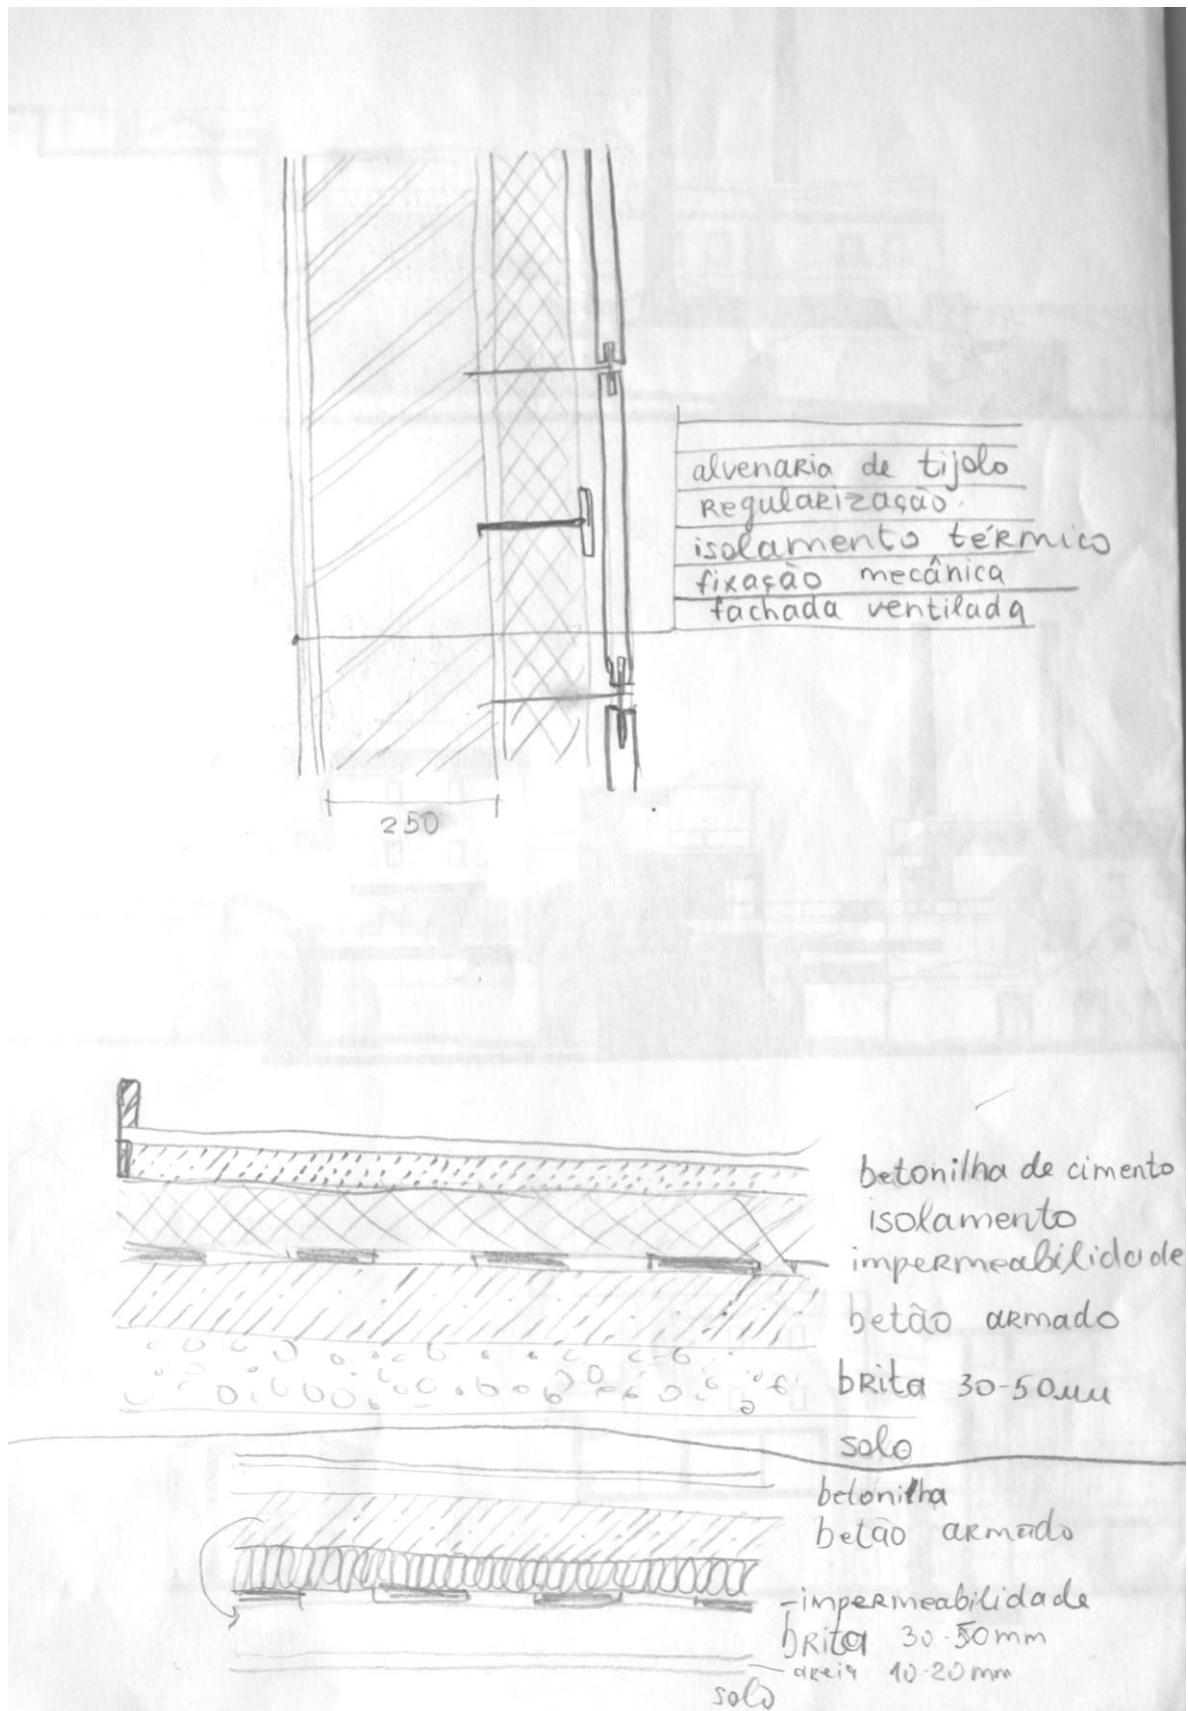 alvenaria de tijolo
Regularização
isolamento térmico
fixação mecânica
fachada ventilada
250
betonilha de cimento
isolamento
impermeabilidade
betão armado
brita 30-50mm
solo
betonilha
betão armado
-impermeabilidade
brita 30-50mm
areia 10-20mm
solo